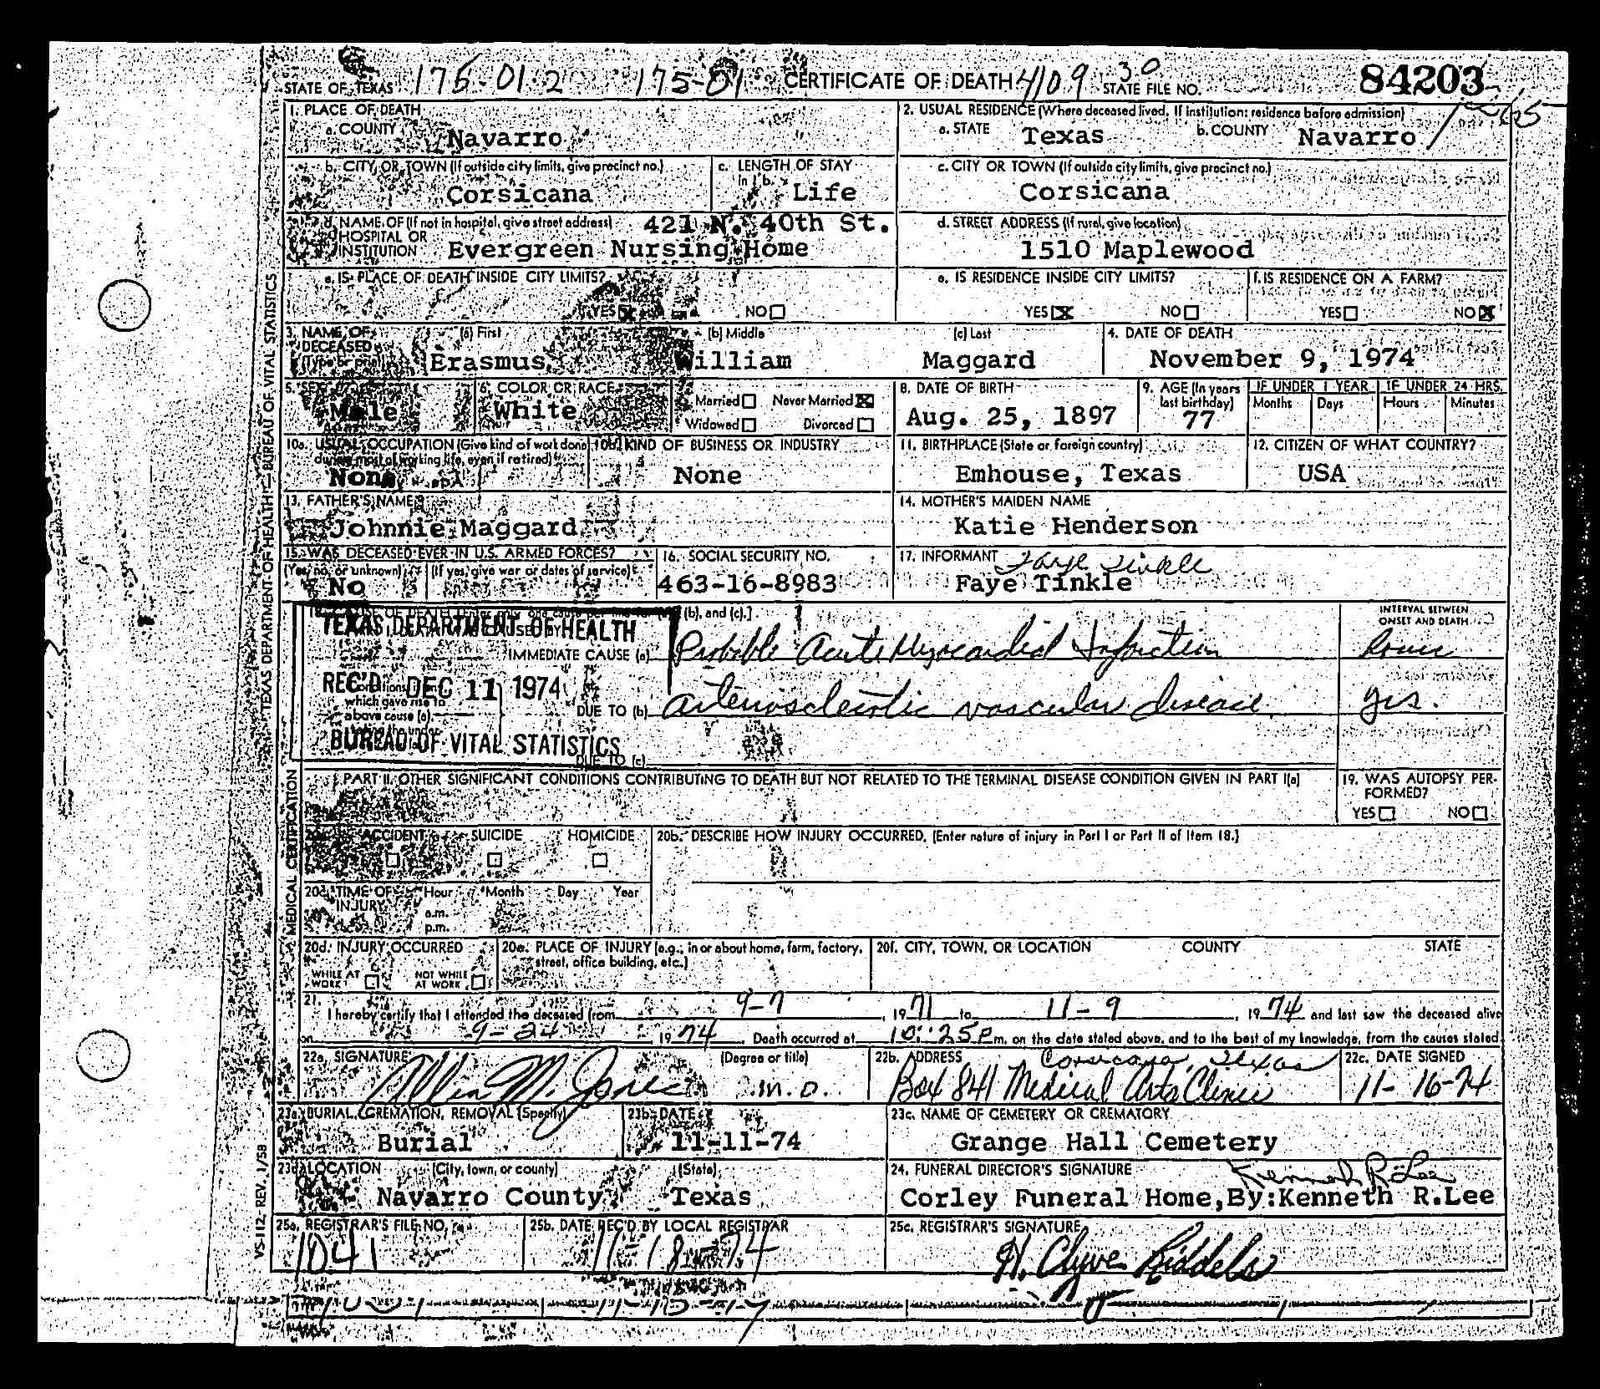 STATE OF TEXAS 175-01-2 175-01 CERTIFICATE OF DEATH 4109 30 STATE FILE NO. 84203
1. PLACE OF DEATH
a. COUNTY Navarro
2. USUAL RESIDENCE (Where deceased lived. If institution: residence before admission)
a. STATE Texas b. COUNTY Navarro
b. CITY OR TOWN (If outside city limits, give precinct no.) Corsicana
c. LENGTH OF STAY in 1b. Life
c. CITY OR TOWN (If outside city limits, give precinct no.) Corsicana
d. NAME OF (If not in hospital, give street address) 421 N. 40th St.
HOSPITAL OR
INSTITUTION Evergreen Nursing Home
d. STREET ADDRESS (If rural, give location)
1510 Maplewood
e. IS PLACE OF DEATH INSIDE CITY LIMITS?
YES☒ NO☐
e. IS RESIDENCE INSIDE CITY LIMITS?
YES☒ NO☐
f. IS RESIDENCE ON A FARM?
YES☐ NO☒
3. NAME OF DECEASED (Type or print) (a) First Erasmus (b) Middle William (c) Last Maggard
4. DATE OF DEATH
November 9, 1974
5. SEX Male
6. COLOR OR RACE White
7. Married☐ Never Married☒
Widowed☐ Divorced☐
8. DATE OF BIRTH
Aug. 25, 1897
9. AGE (In years last birthday) 77
IF UNDER 1 YEAR Months Days
IF UNDER 24 HRS. Hours Minutes
10a. USUAL OCCUPATION (Give kind of work done during most of working life, even if retired) None
10b. KIND OF BUSINESS OR INDUSTRY
None
11. BIRTHPLACE (State or foreign country)
Emhouse, Texas
12. CITIZEN OF WHAT COUNTRY?
USA
13. FATHER'S NAME
Johnnie Maggard
14. MOTHER'S MAIDEN NAME
Katie Henderson
15. WAS DECEASED EVER IN U.S. ARMED FORCES?
(Yes, no, or unknown) (If yes, give war or dates of service)
No
16. SOCIAL SECURITY NO.
463-16-8983
17. INFORMANT Faye Tinkle
Faye Tinkle
(b), and (c).]
INTERVAL BETWEEN ONSET AND DEATH
TEXAS DEPARTMENT OF HEALTH
REC'D DEC 11 1974
BUREAU OF VITAL STATISTICS
IMMEDIATE CAUSE (a) Probable Acute Myocardial Infarction
which gave rise to
above cause (a),
DUE TO (b) arteriosclerotic vascular disease yrs.
DUE TO (c)
PART II. OTHER SIGNIFICANT CONDITIONS CONTRIBUTING TO DEATH BUT NOT RELATED TO THE TERMINAL DISEASE CONDITION GIVEN IN PART I(a)
19. WAS AUTOPSY PERFORMED?
YES☐ NO☐
ACCIDENT SUICIDE HOMICIDE
☐ ☐ ☐
20b. DESCRIBE HOW INJURY OCCURRED. (Enter nature of injury in Part I or Part II of Item 18.)
TIME OF INJURY Hour Month Day Year
a.m.
p.m.
20d. INJURY OCCURRED
WHILE AT WORK ☐ NOT WHILE AT WORK ☐
20e. PLACE OF INJURY (e.g., in or about home, farm, factory, street, office building, etc.)
20f. CITY, TOWN, OR LOCATION COUNTY STATE
21.
I hereby certify that I attended the deceased from 9-7, 1971 to 11-9, 1974 and last saw the deceased alive
on 9-24 1974. Death occurred at 10:25P m. on the date stated above, and to the best of my knowledge, from the causes stated
22a. SIGNATURE (Degree or title)
Allen M. Jones M.D.
22b. ADDRESS Corsicana, Texas
Box 841 Medical Arts Clinic
22c. DATE SIGNED
11-16-74
23a. BURIAL, CREMATION, REMOVAL (Specify)
Burial
23b. DATE
11-11-74
23c. NAME OF CEMETERY OR CREMATORY
Grange Hall Cemetery
23d. LOCATION (City, town, or county) (State)
Navarro County, Texas
24. FUNERAL DIRECTOR'S SIGNATURE Kenneth R. Lee
Corley Funeral Home, By: Kenneth R. Lee
25a. REGISTRAR'S FILE NO.
1041
25b. DATE REC'D BY LOCAL REGISTRAR
11-18-74
25c. REGISTRAR'S SIGNATURE
H. Clyve Riddels
TEXAS DEPARTMENT OF HEALTH — BUREAU OF VITAL STATISTICS
MEDICAL CERTIFICATION
VS-112, REV. 1/58